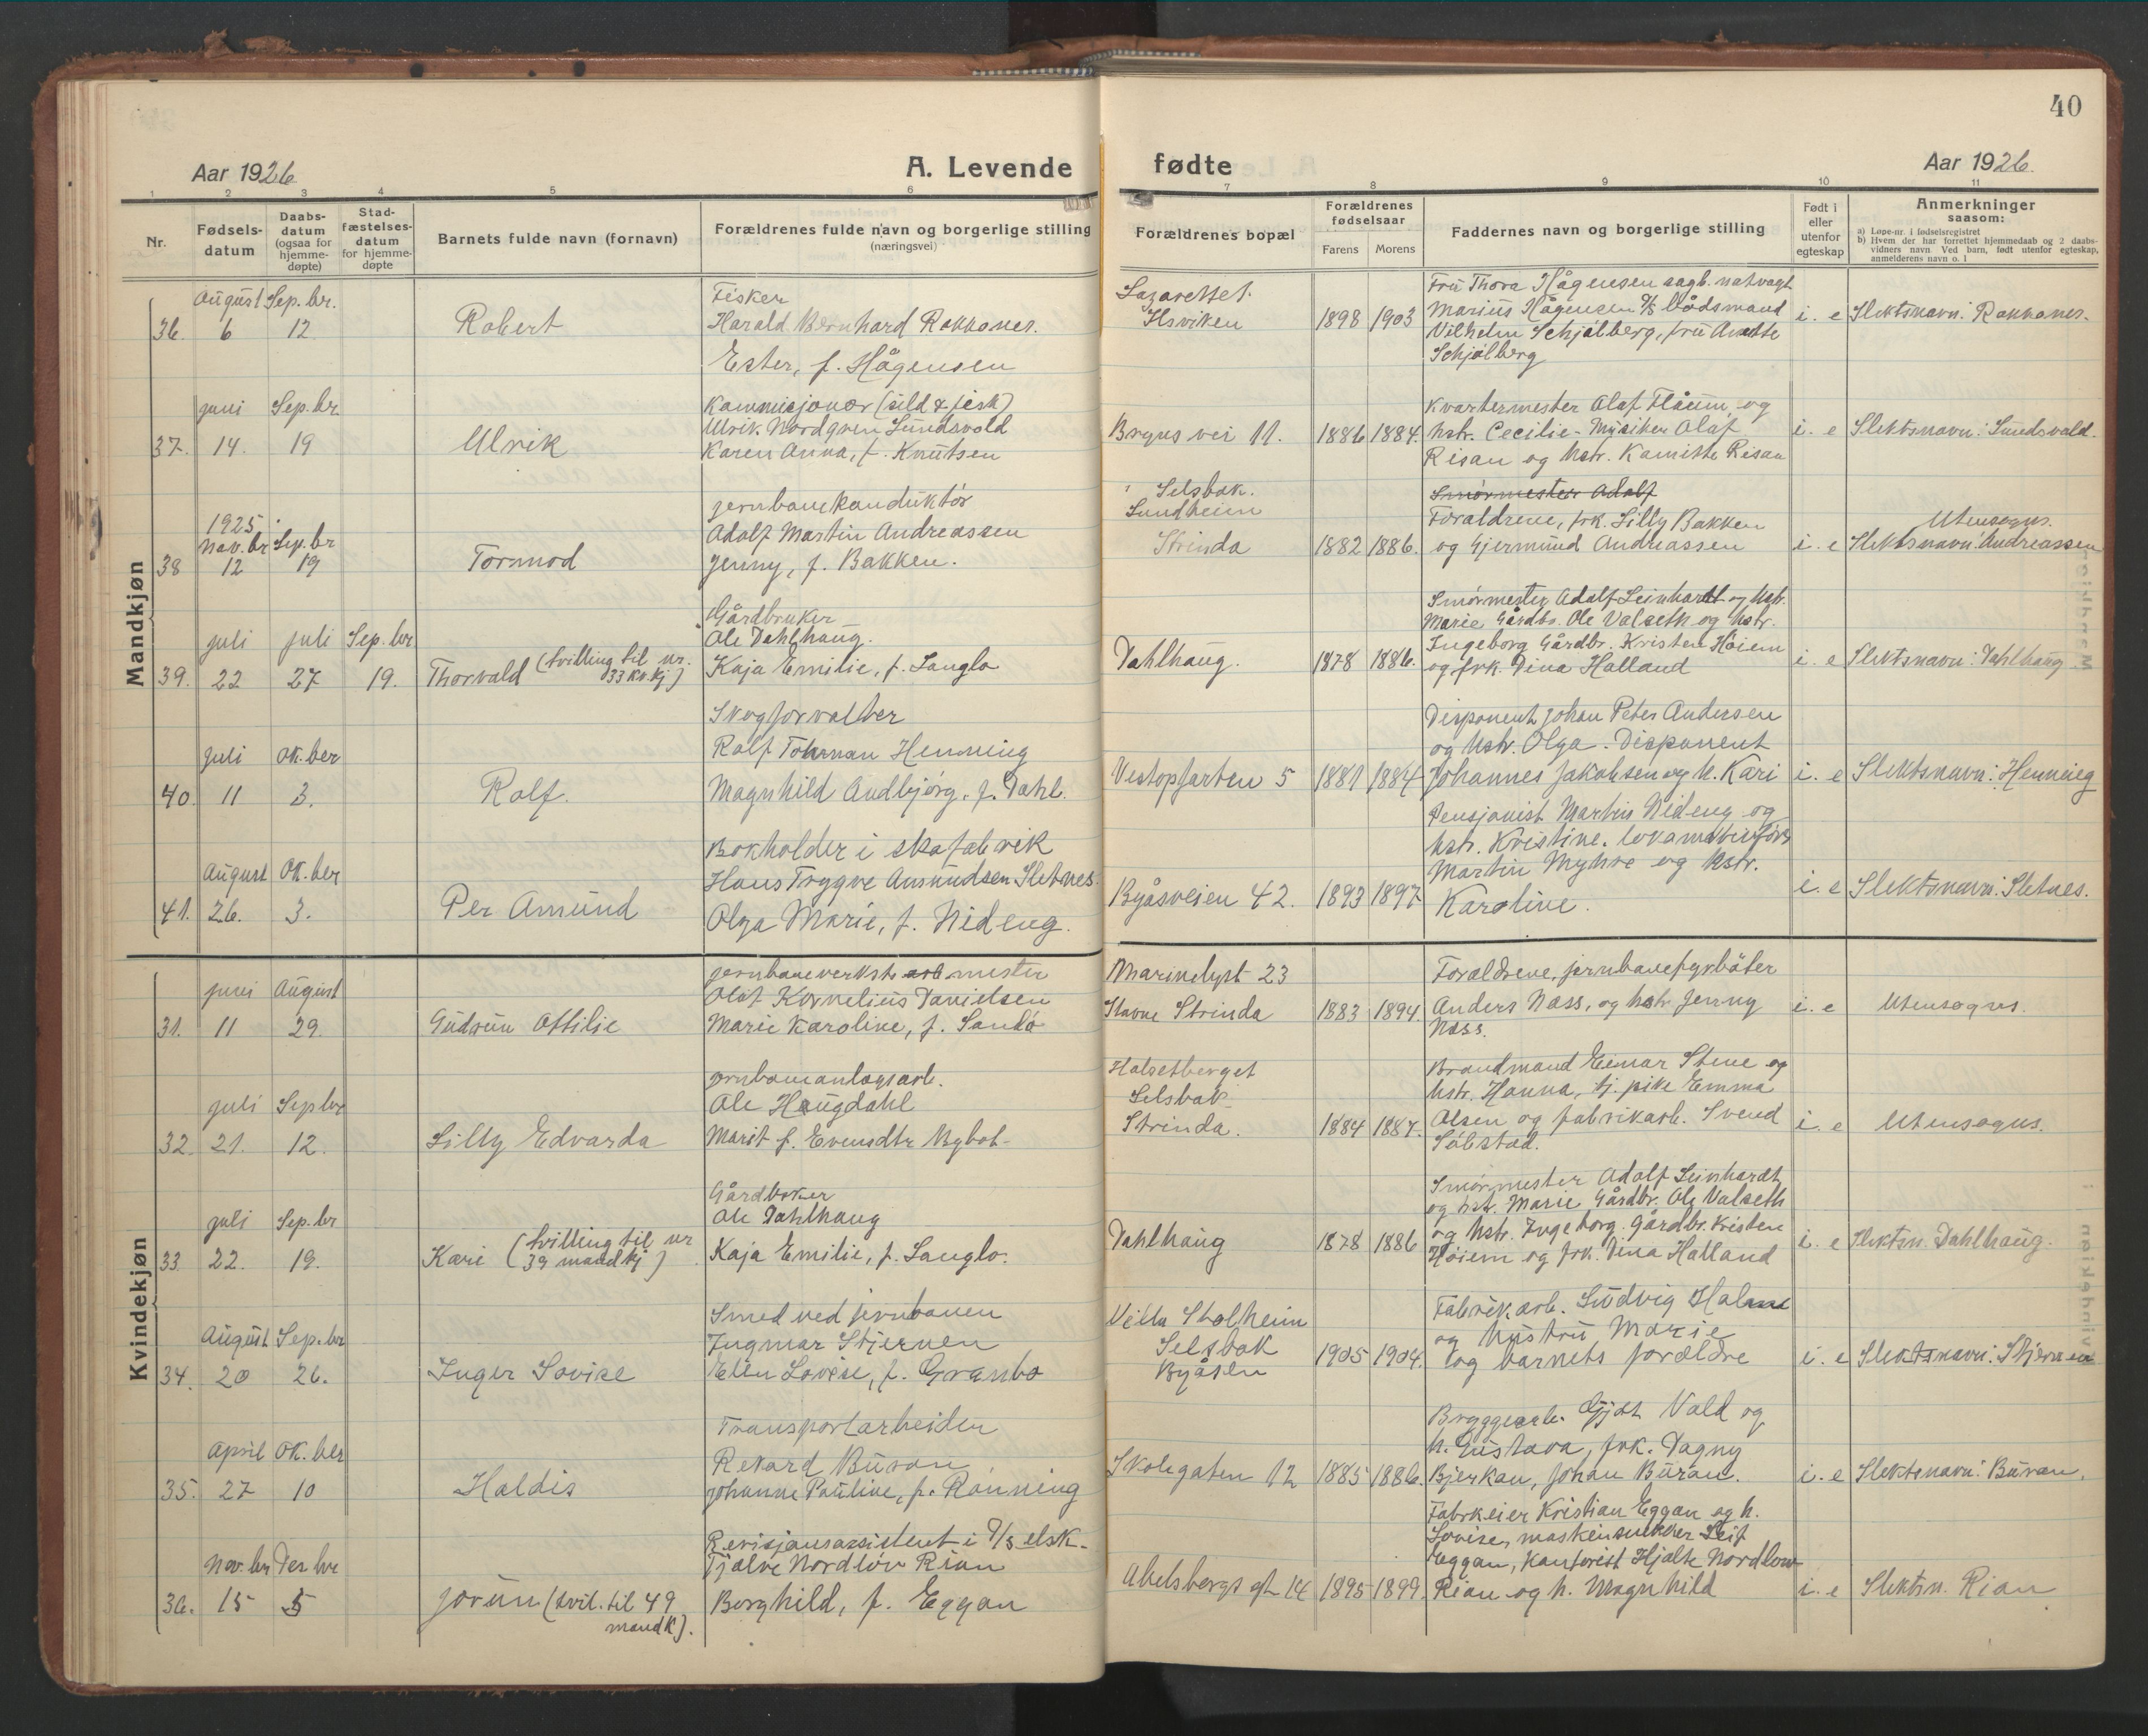 40
Aar 1926
A. Levende
fødte
Aar 1926.
1 2 3 4 5 6 7 8 9 10 11
Nr.
Fødsels-
datum
Daabs-
datum
(ogsaa for
hjemme-
døpte)
Stad-
fæstelses-
datum
for hjemme-
døpte
Barnets fulde navn (fornavn)
Forældrenes fulde navn og borgerlige stilling
(næringsvei)
Forældrenes bopæl
Forældrenes
fødselsaar
Farens Morens
Faddernes navn og borgerlige stilling
Født i
eller
utenfor
egteskap
Anmerkninger
saasom:
a) Løpe-nr. i fødselsregistret
b) Hvem der har forrettet hjemmedaab og 2 daabs-
vidners navn. Ved barn, født utenfor egteskap,
anmelderens navn o. l
Mandkjøn
36. August 6 Sep.br. 12
Robert
Fisker
Harald Bernhard Rokkones.
Ester, f. Hågensen
Lazarettet.
Ilsviken
1898 1903
Fru Thora Hågensen sagb. natvagt
Marius Hågensen bådsmand
Vilhelm Schjølberg, fru Anette
Schjølberg
i. e Slektsnavn: Rokkones.
37. juni 14. Sep.br 19
Ulrik
Kommisjonær (sild & fisk)
Ulrik Nordgren Sundsvold
Karen Anna, f. Knutsen
Bryns vei 11.
1886 1884.
Kvartermester Olaf Flåum og
hstr. Cecilie - Musiker Olaf
Risan og hstr. Kamitte Risan
i. e Slektsnavn: Sundsvald.
38 1925 Nov.br 12 Sep.br 19
Tormod
jernbanekonduktør
Adolf Martin Andreassen
Jenny, f. Bakken.
Selsbak.
Sundheim
Strinda
1882 1886.
Smørmester Adolf
Foraldrene, frk. Lilly Bakken
og Gjermund Andreassen
i. e Utensogns.
Slektsnavn: Andreassen
39. juli 22 juli 27 Sep.br 19.
Thorvald (tvilling til nr.
33 kv.kj.)
Gårdbruker
Ole Dahlhaug.
Kaja Emilie, f. Langlo
Dahlhaug.
1878 1886.
Smørmester Adolf Leinhardt og hstr.
Marie, Gårdbr. Ole Valseth og hstr.
Ingeborg Gårdbr. Kristen Høiem
og frk. Dina Halland
i. e Slektsnavn: Dahlhaug
40. juli 11 ok.ber 3.
Rolf.
Skogforvalter
Rolf Tohrman Henning
Magnhild Audbjørg, f. Dahl.
Vestopfarten 5
1881 1884
Disponent Johan Peter Andersen
og hstr. Olga. Disponent
Johannes Jakobsen og h. Kari
i. e Slektsnavn: Henning
41. August 26. ok.ber 3.
Per Amund
Bokholder i skofabrik
Hans Trygve Amundsen Sletnes.
Olga Marie, f. Nideng.
Byåsveien 42.
1893 1897
Pensjonist Martin Nideng og
hstr. Kristine. lokomotivfører
Martin Myhre og hstr.
Karoline.
i. e Slektsnavn: Sletnes.
Kvindekjøn
31. juni 11 August 29.
Gudrun Ottilie
jernbaneverkst. arb mester
Olaf Kornelius Danielsen
Marie Karoline, f. Sandø
Marinelyst 23
Stavne Strinda
1883 1894.
Foraldrene, jernbanefyrbøter
Anders Næss, og hstr Jenny
Næss.
i. e Utensogns.
32. juli 21. Sepbr 12.
Lilly Edvarda
jernbaneanlagsarb.
Ole Haugdahl
Marit f. Evensdtr Nybot
Halsetberget
Selsbak
Strinda.
1884 1887.
Brandmand Einar Stene og
hstr. Hanna, tj. pike Emma
Olsen og fabrikarb. Svend
Søbstad.
i. e Utensogns.
33 juli 22. Sep.br 19.
Kari (tvilling til nr
39 mandkj)
Gårdbrker
Ole Dahlhaug
Kaja Emilie, f. Langlo.
Dahlhaug
1878 1886
Smørmester Adolf Leinhardt
og hst. Marie Gårdbr. Ole Valseth
og hstr. Ingeborg. Gårdbr. Kristen
Høiem og frk. Dina Halland
i. e Slektsn. Dahlhaug.
34. August 20 Sep.br 26.
Inger Lovise
Smed ved jernbanen
Ingmar Stjernen
Elin Lovise, f. Granbo
Villa Stolheim
Selsbak
Byåsen
1905 1904.
Fabrik.arb. Ludvig
og hustru Marie
og barnets forældre
i. e Slektsnavn: Stjernen
35. April 27 ok.ber 10
Haldis
Transportarbeider
Rekard Buran
Johanne Pauline, f. Rønning
Skolegaten 12
1885 1886.
Bryggearb. Gjøt Vold og
h. Gustava, frk. Dagny
Bjerkan, Johan Buran.
i. e Slektsnavn: Buran.
36. Nov.br 15 Des.br 5
Jorun (tvil. til 49
mandk).
Revisjonsassistent i T/s elsk.
Tjalve Nordløv Rian
Borghild, f. Eggan
Abelsbergs gt 14
1895 1899.
Fabrkeier Kristian Eggan og h.
Lovise, maskinsnekker Leif
Eggan, Kontorist Hjalte Nordlow
Rian og h. Magnhild
i. e Slektsn. Rian